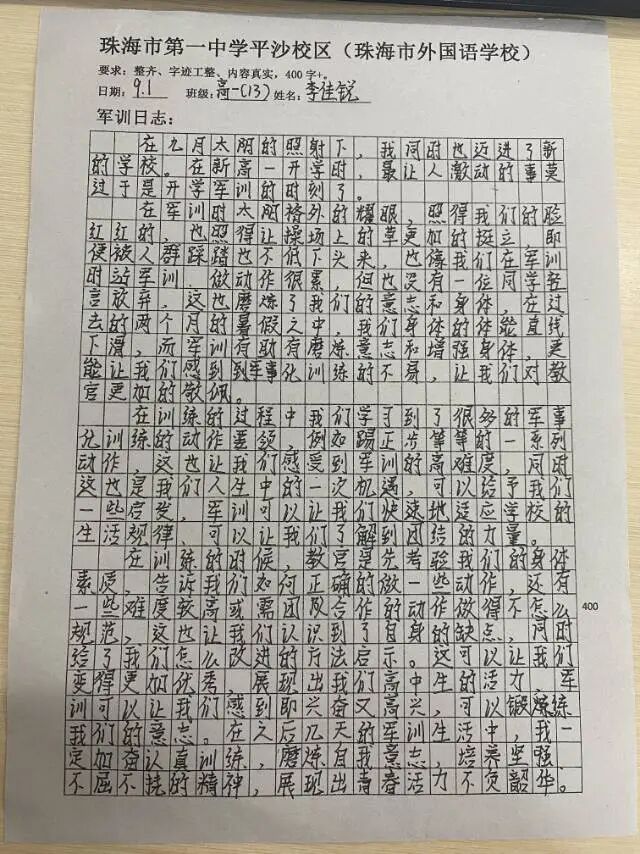 珠海市第一中学平沙校区（珠海市外国语学校）
要求：整齐、字迹工整、内容真实，400字+。
日期：9.1 班级：高一(13) 姓名：李佳锐
军训日志：
在九月太阳的照射下，我同时也迈进了新
的学校。在新高一开学时，最让人激动的事莫
过于是开学军训的时刻了。
在军训时太阳格外的耀眼，照得我们的脸
红红的，也照得让操场上的草更加的挺立，即
便被人群踩踏也不低下头来，也像我们在军训
时的军训，做动作很累，但也没有一位同学轻
言放弃，这也磨炼了我们的意志和身体，在过
去的两个月的暑假之中，我们身体的体能直线
下滑，而军训有助有磨炼意志和增强身体，更
能让我们感到到军事化训练的不易，让我们对教
官更加的敬佩。
在训练的过程中我们学习到了很多的军事
化训练的动作要领，例如踢正步等等的一系列
动作，这也让我们感受到军训的高难度，同时
这也是我们人生中的一次机遇，可以给予我们
一些启发，军训可以让我们快速地适应学校的
生活规律，可以让我们了解到团结的力量。
在训练的时候，教官是先考验我们的身体
素质，告诉我们如何正确的做一些动作，还有
一些难度较高或需团队合作的动作做得不怎么
400
规范，这也让我们认识到了自身的缺点，同时
给了我们怎么改进的方法启示。这可以让我们
变得更加优秀，展现出我们高中生的活力，军
训可以让我们感到即兴奋又高兴，可以锻炼
我们的意志。在之后几天的军训生活中，我一
定加奋认真训练，磨炼自我意志，培养坚强
不屈不挠的精神，展现出青春活力不负韶华。